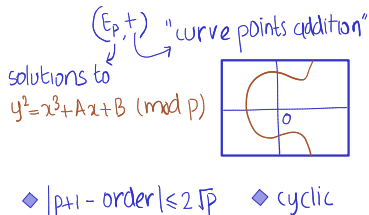 (Ep,+) "curve points addition"
solutions to
y²=x³+Ax+B (mod p)
0
|p+1 - order|≤2√p
cyclic